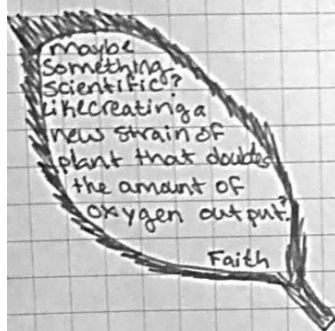 maybe
something
scientific?
Like creating a
new strain of
plant that doubles
the amount of
oxygen output?
Faith